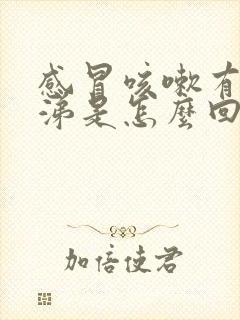 感冒咳嗽有
涕是怎麼回
加倍使君